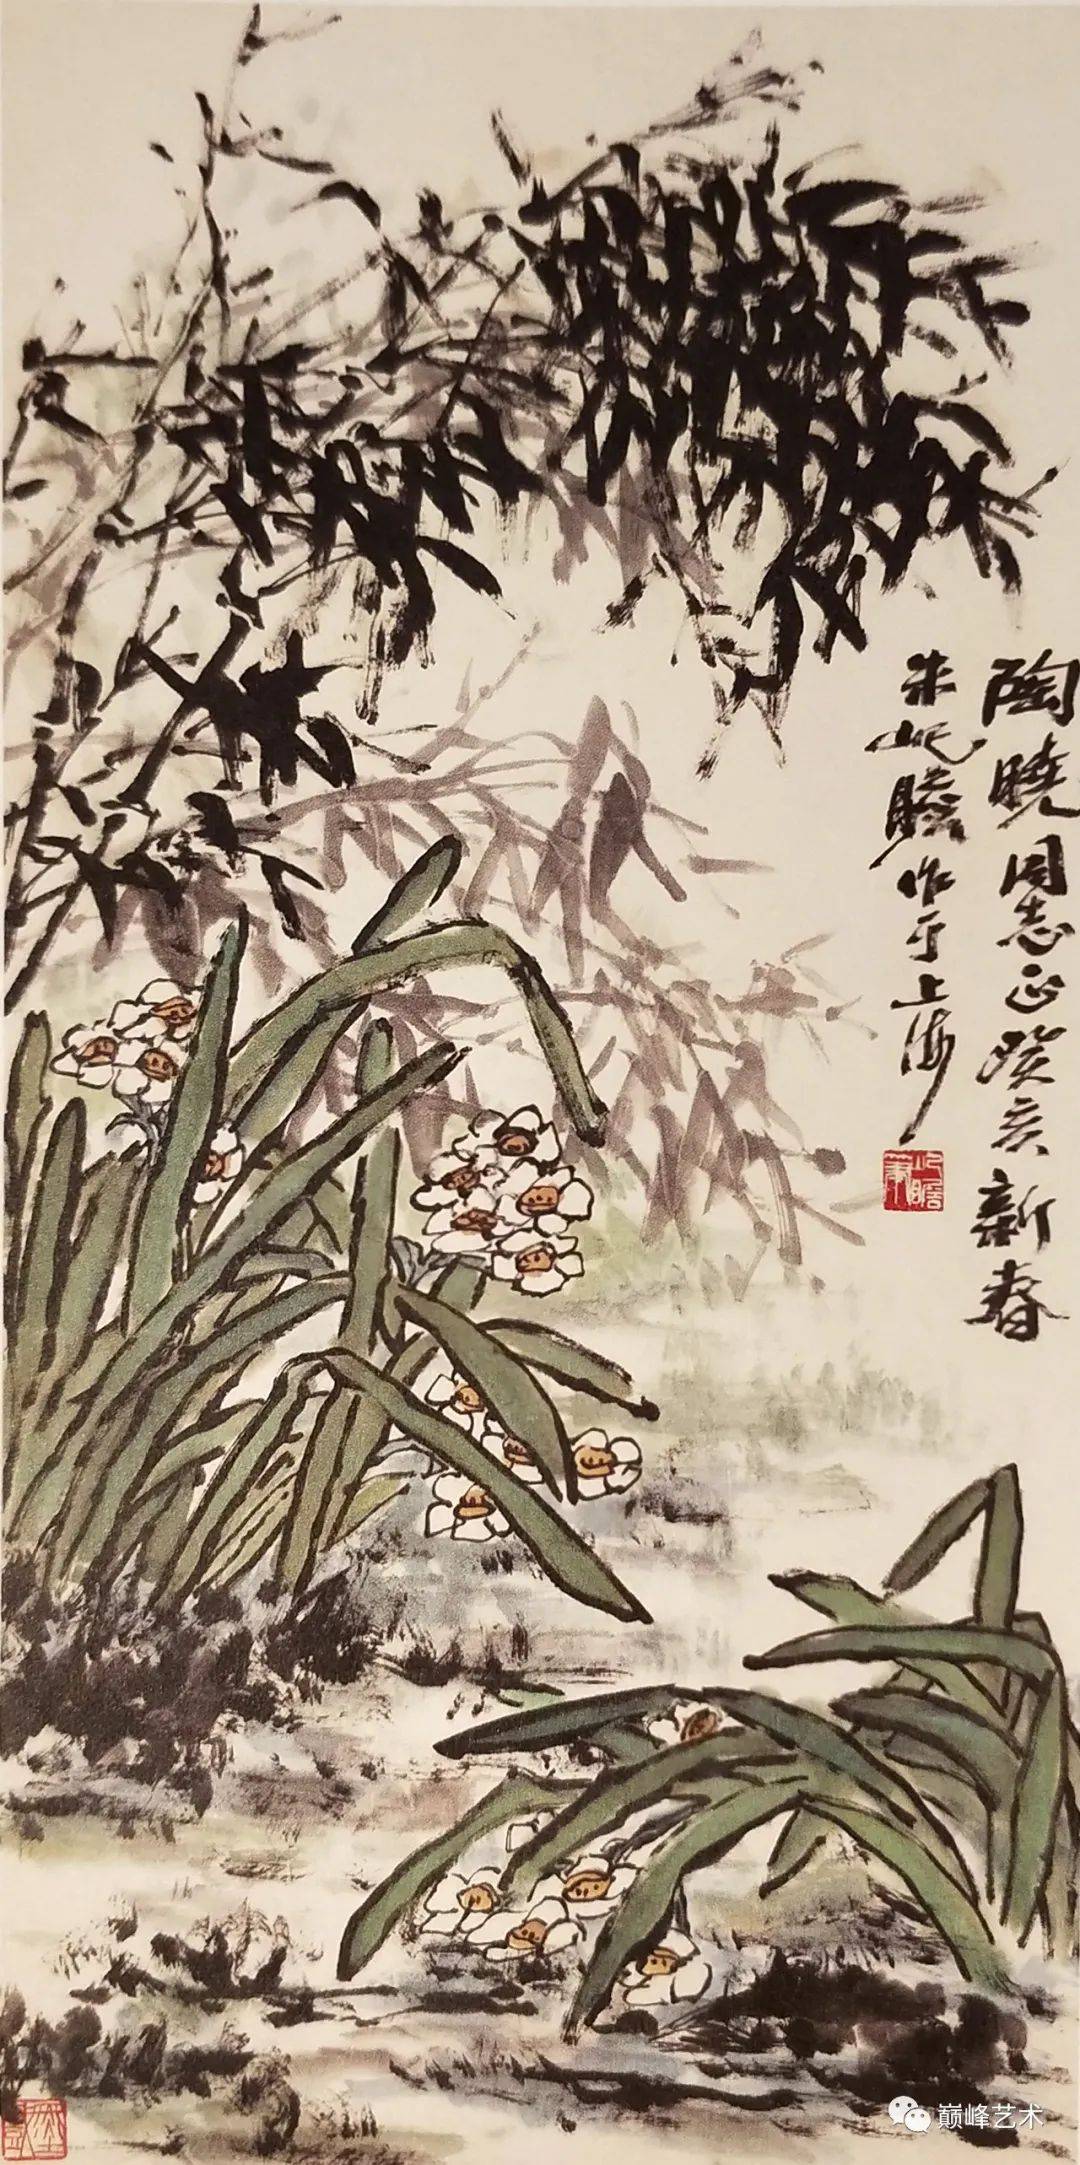 陶曉同志正癸亥新春
朱屺瞻作于上海
巅峰艺术